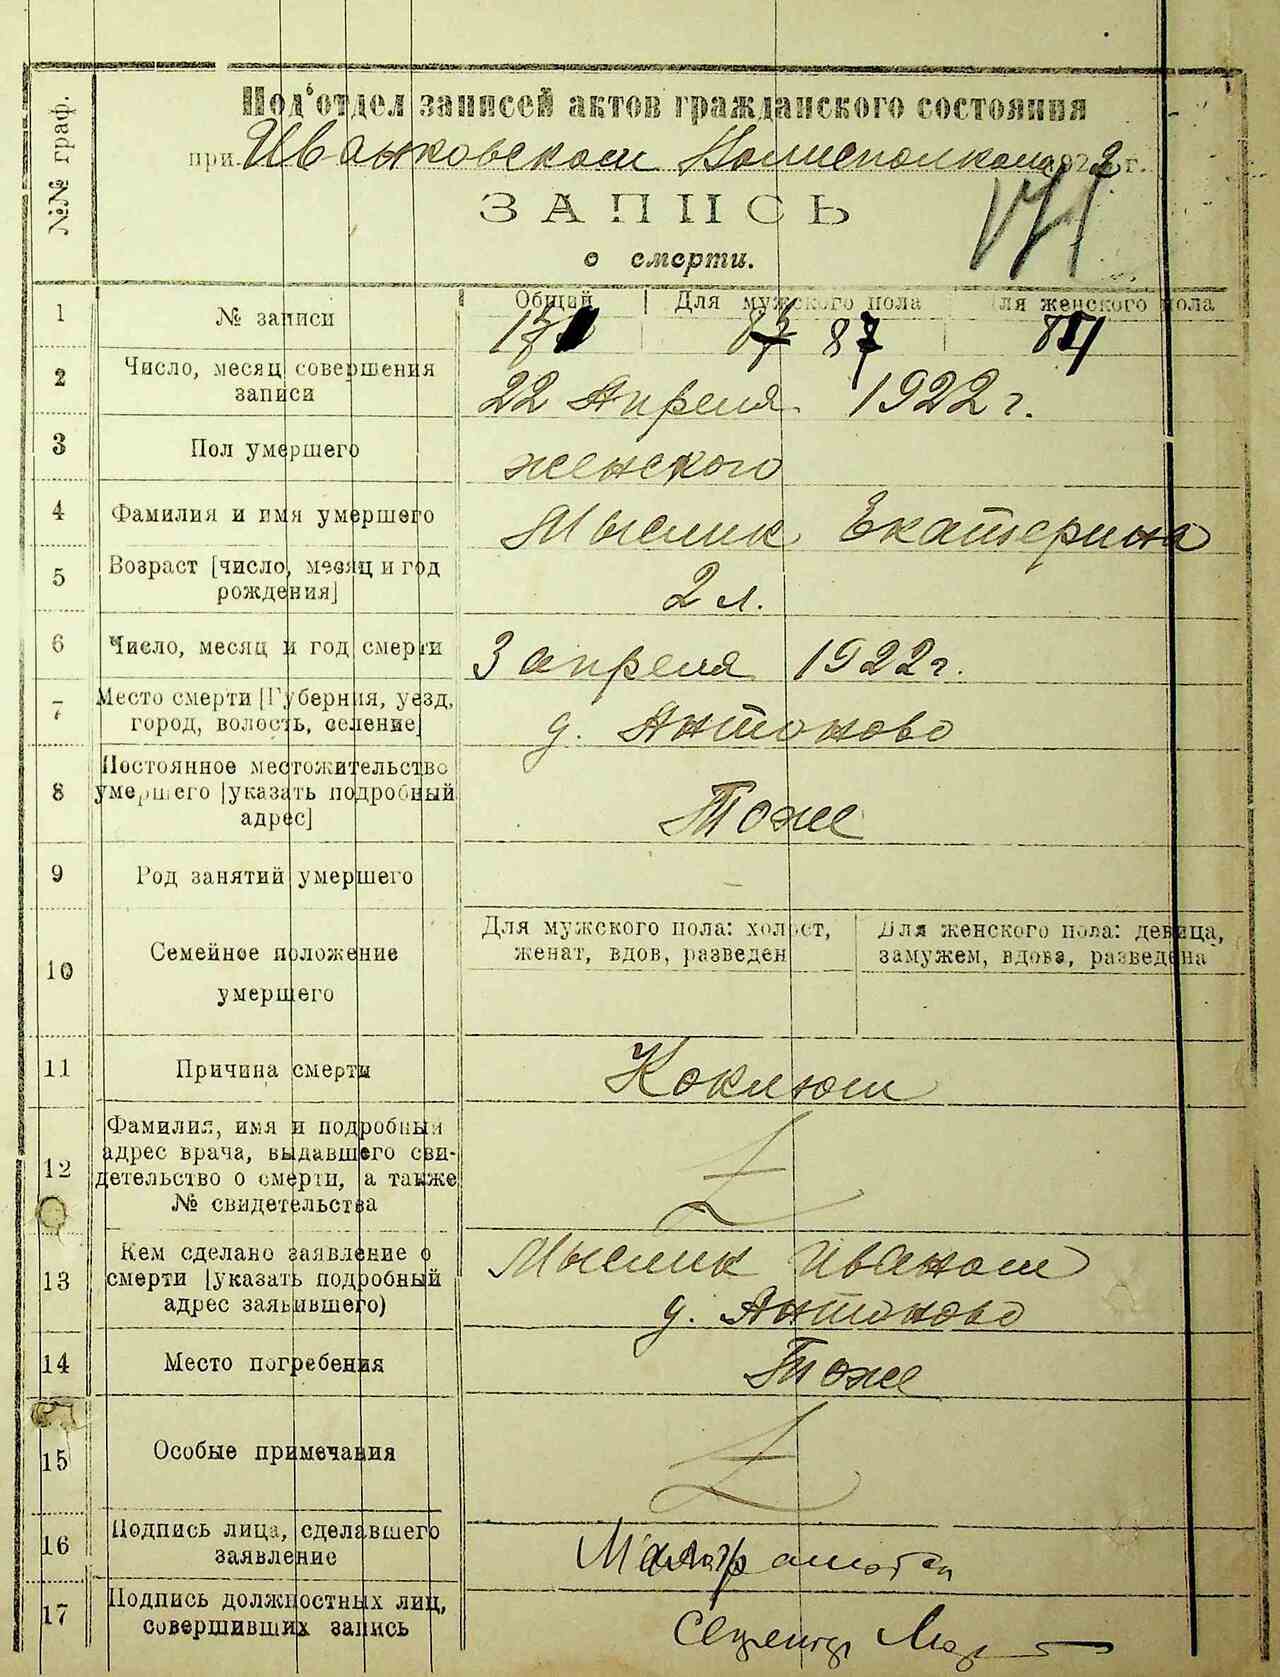 №№ граф.
Под'отдел записей актов гражданского состояния
при Иваньковском Волисполкоме 1922 г.
ЗАПИСЬ
о смерти.
Общий Для мужского пола Для женского пола
1 № записи 171 87 84
2 Число, месяц совершения
записи
22 Апреля 1922 г.
3 Пол умершего женского
4 Фамилия и имя умершего Мыслик Екатерина
5 Возраст [число, месяц и год
рождения]
2 л.
6 Число, месяц и год смерти 3 апреля 1922 г.
7 Место смерти [Губерния, уезд,
город, волость, селение]
д. Антоново
8 Постоянное местожительство
умершего [указать подробный
адрес]
Тоже
9 Род занятий умершего
10 Семейное положение
умершего
Для мужского пола: холост,
женат, вдов, разведен
Для женского пола: девица,
замужем, вдова, разведена
11 Причина смерти Коклюш
12 Фамилия, имя и подробный
адрес врача, выдавшего сви-
детельство о смерти, а также
№ свидетельства
13 Кем сделано заявление о
смерти [указать подробный
адрес заявившего)
Мыслик Иваном
д. Антоново
14 Место погребения Тоже
15 Особые примечания
16 Подпись лица, сделавшего
заявление
Малограмотен
17 Подпись должностных лиц,
совершивших запись